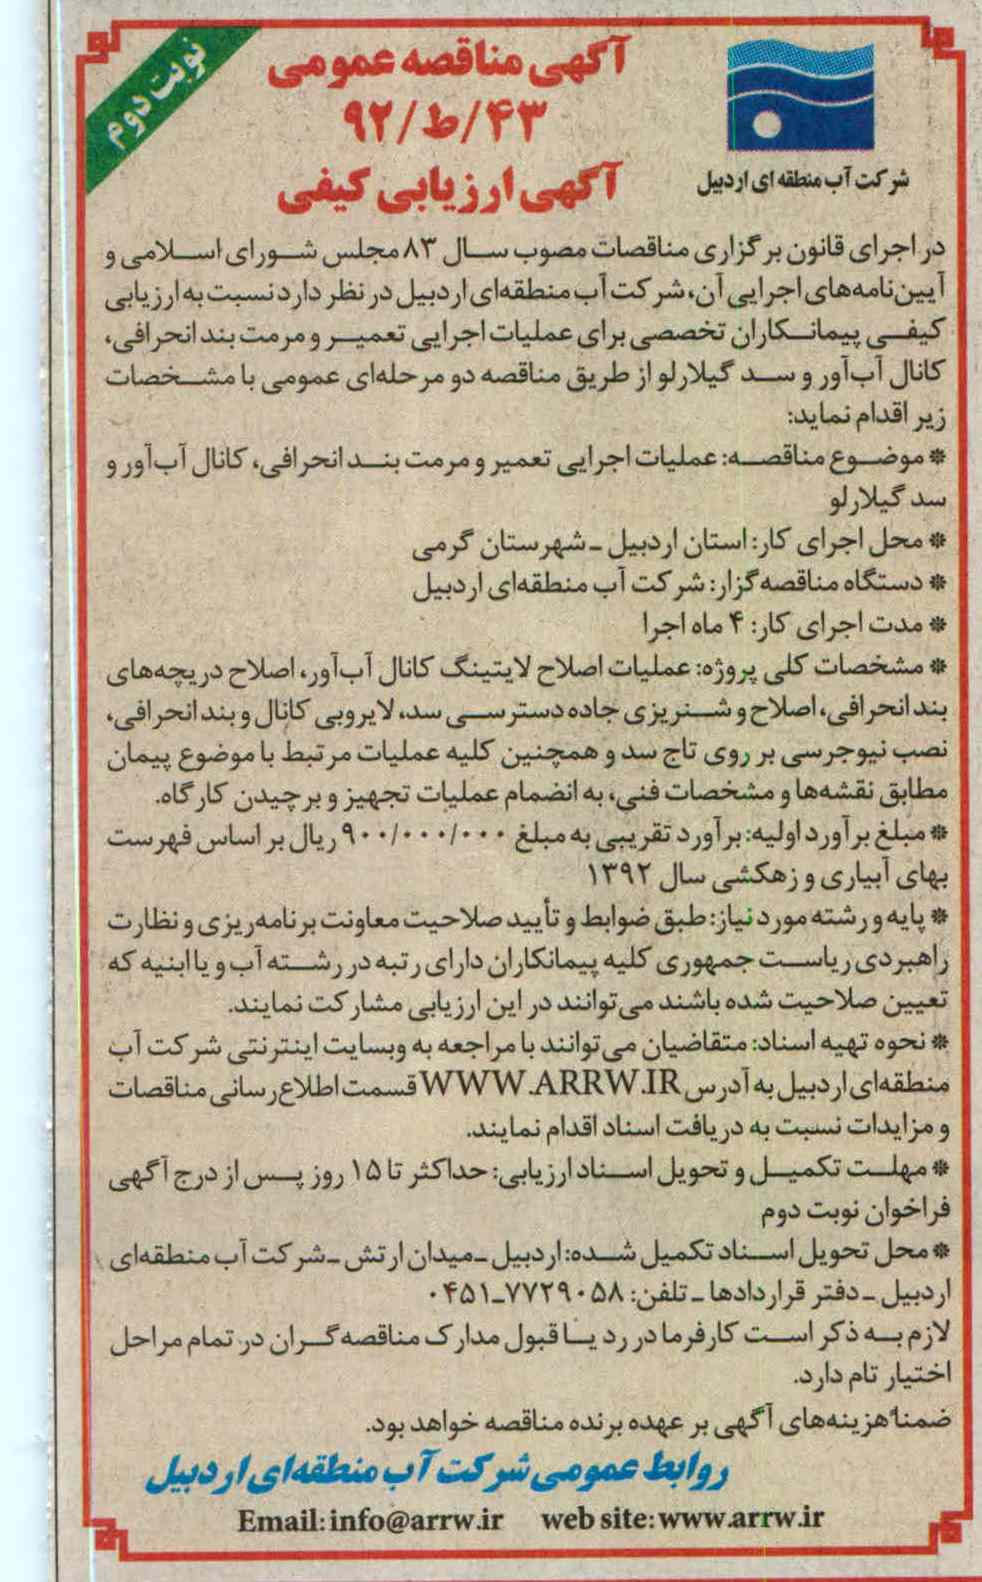 نوبت دوم
آگهی مناقصه عمومی
۴۳/ط/۹۲
آگهی ارزیابی کیفی
شرکت آب منطقه ای اردبیل
در اجرای قانون برگزاری مناقصات مصوب سال ۸۳ مجلس شورای اسلامی و
آیین‌نامه‌های اجرایی آن، شرکت آب منطقه‌ای اردبیل در نظر دارد نسبت به ارزیابی
کیفی پیمانکاران تخصصی برای عملیات اجرایی تعمیر و مرمت بند انحرافی،
کانال آب‌آور و سد گیلارلو از طریق مناقصه دو مرحله‌ای عمومی با مشخصات
زیر اقدام نماید:
* موضوع مناقصه: عملیات اجرایی تعمیر و مرمت بند انحرافی، کانال آب‌آور و
سد گیلارلو
* محل اجرای کار: استان اردبیل ـ شهرستان گرمی
* دستگاه مناقصه‌گزار: شرکت آب منطقه‌ای اردبیل
* مدت اجرای کار: ۴ ماه اجرا
* مشخصات کلی پروژه: عملیات اصلاح لایتینگ کانال آب‌آور، اصلاح دریچه‌های
بند انحرافی، اصلاح و شنریزی جاده دسترسی سد، لایروبی کانال و بند انحرافی،
نصب نیوجرسی بر روی تاج سد و همچنین کلیه عملیات مرتبط با موضوع پیمان
مطابق نقشه‌ها و مشخصات فنی، به انضمام عملیات تجهیز و برچیدن کارگاه.
* مبلغ برآورد اولیه: برآورد تقریبی به مبلغ ۹۰۰/۰۰۰/۰۰۰ ریال بر اساس فهرست
بهای آبیاری و زهکشی سال ۱۳۹۲
* پایه و رشته مورد نیاز: طبق ضوابط و تأیید صلاحیت معاونت برنامه‌ریزی و نظارت
راهبردی ریاست جمهوری کلیه پیمانکاران دارای رتبه در رشته آب و یا ابنیه که
تعیین صلاحیت شده باشند می‌توانند در این ارزیابی مشارکت نمایند.
* نحوه تهیه اسناد: متقاضیان می‌توانند با مراجعه به وبسایت اینترنتی شرکت آب
منطقه‌ای اردبیل به آدرس WWW.ARRW.IR قسمت اطلاع‌رسانی مناقصات
و مزایدات نسبت به دریافت اسناد اقدام نمایند.
* مهلت تکمیل و تحویل اسناد ارزیابی: حداکثر تا ۱۵ روز پس از درج آگهی
فراخوان نوبت دوم
* محل تحویل اسناد تکمیل شده: اردبیل ـ میدان ارتش ـ شرکت آب منطقه‌ای
اردبیل ـ دفتر قراردادها ـ تلفن: ۷۷۲۹۰۵۸ـ۰۴۵۱
لازم به ذکر است کارفرما در رد یا قبول مدارک مناقصه‌گران در تمام مراحل
اختیار تام دارد.
ضمناً هزینه‌های آگهی بر عهده برنده مناقصه خواهد بود.
روابط عمومی شرکت آب منطقه‌ای اردبیل
Email: info@arrw.ir web site: www.arrw.ir